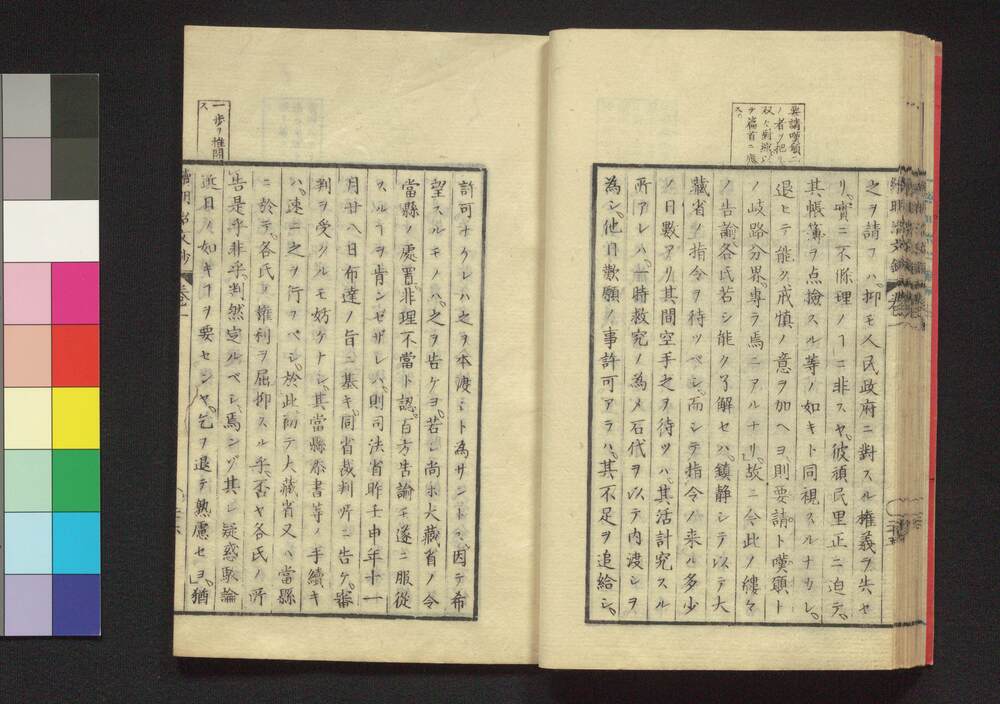 要請嘆願二
之ヲ請フハ抑モ人民政府ニ對スル權義ヲ失セ
リ實ニ不條理ノヿニ非スヤ彼頑民里正ニ迫テ
其帳簿ヲ点撿スル等ノ如キト同視スルナカレ
退ヒテ能ク戒慎ノ意ヲ加ヘヨ則要請ト嘆願ト
ノ岐路分界專ラ焉ニアルナリ故ニ今此ノ縷々
ノ告諭各氏若シ能ク了解セハ鎮静シテ以テ大
藏省ノ指令ヲ待ツベシ而シテ指令ノ来ル多少
ノ日數アリ其間空手之ヲ待ツハ其活計究スル
所アレハ一時救究ノ為メ石代ヲ以テ内渡シヲ
為シ他日歎願ノ事許可アラハ其不足ヲ追給シ
一歩ヲ推開
ス
許可ナケレハ之ヲ本渡シト為サントス因テ希
望スルモノハ之ヲ告ケヨ若シ尚ホ大藏省ノ令
當縣ノ處置非理不當ト認百方告諭モ遂ニ服從
スルヿヲ肯ンゼザレハ則司法省昨壬申年十一
月廿八日布達ノ旨ニ基キ同省裁判所ニ告ケ審
判ヲ受クルモ妨ケナシ其當縣添書等ノ手續キ
ハ速ニ之ヲ行フベシ於此而テ大藏省又ハ當縣
ニ於テ各氏ノ權利ヲ屈抑スル乎否ヤ各氏ノ所
告是乎非乎判然定ルベシ焉ンゾ其レ疑惑駁論
近日ノ如キヿヲ要センヤ乞フ退テ熟慮セヨ」猶